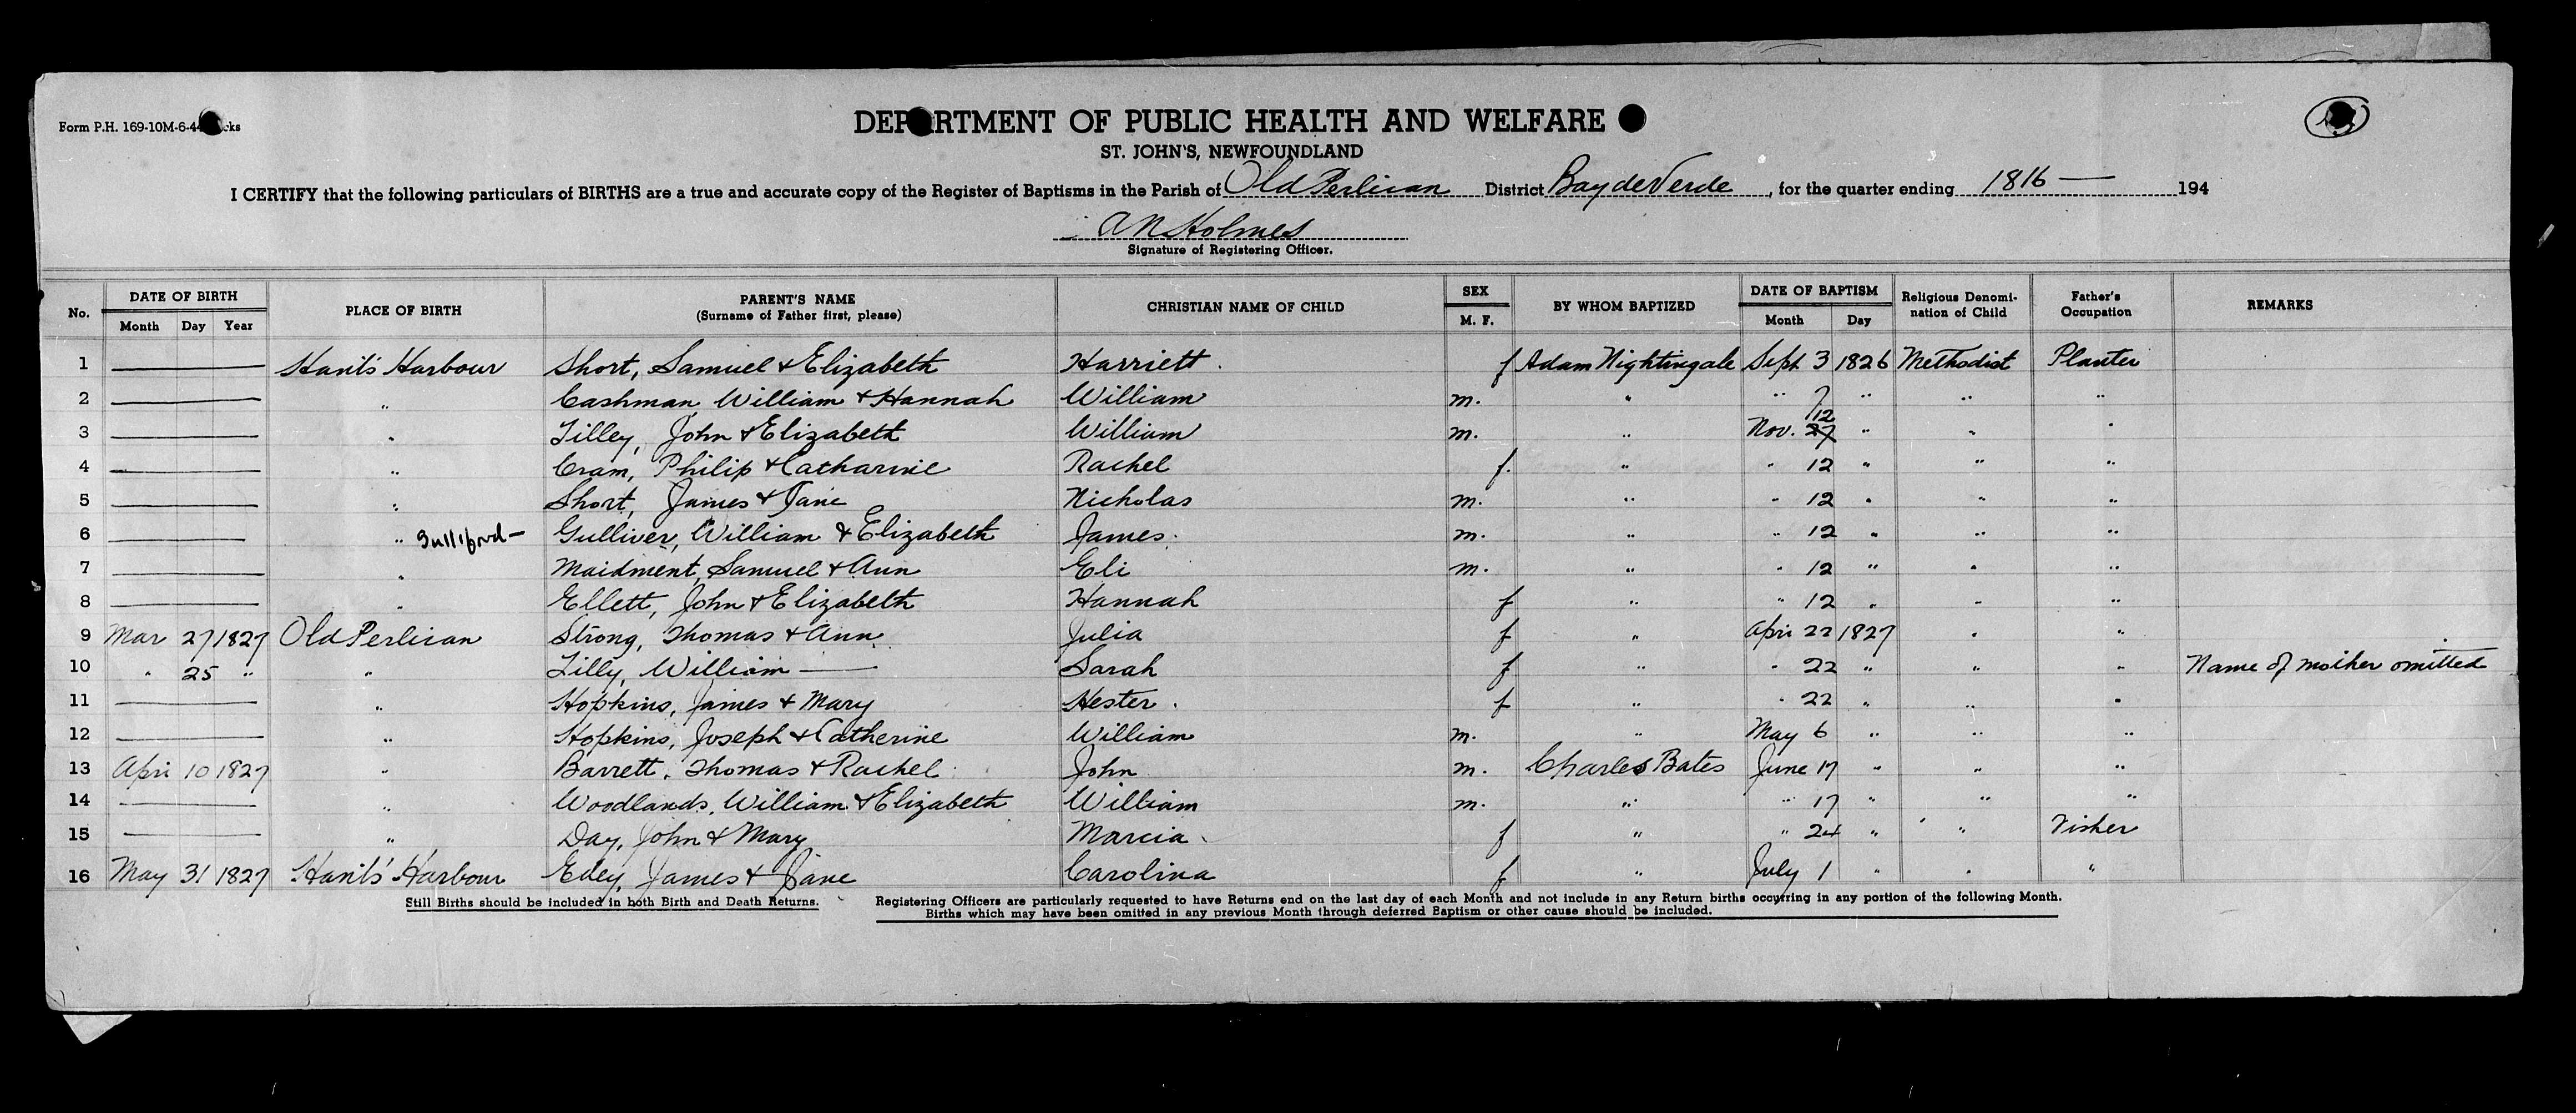 Form P.H. 169-10M-6-4 cks
DEPARTMENT OF PUBLIC HEALTH AND WELFARE
ST. JOHN'S, NEWFOUNDLAND
I CERTIFY that the following particulars of BIRTHS are a true and accurate copy of the Register of Baptisms in the Parish of Old Perlican District Bay de Verde, for the quarter ending 1816 — 194
A N Holmes
Signature of Registering Officer.
No. DATE OF BIRTH Month Day Year PLACE OF BIRTH PARENT'S NAME (Surname of Father first, please) CHRISTIAN NAME OF CHILD SEX M. F. BY WHOM BAPTIZED DATE OF BAPTISM Month Day Religious Denomi-nation of Child Father's Occupation REMARKS
1 — Hant's Harbour Short, Samuel & Elizabeth Harriett. f Adam Nightingale Sept 3 1826 Methodist Planter
2 — " Cashman, William & Hannah William m. " " 7 " " "
3 — " Tilley, John & Elizabeth William m. " Nov. 12 27 " " "
4 — " Cram, Philip & Catharine Rachel f. " " 12 " " "
5 — " Short, James & Jane Nicholas m. " " 12 " " "
6 — " Gulliford — Gulliver, William & Elizabeth James. m. " " 12 " " "
7 — " Maidment, Samuel & Ann Eli m. " " 12 " " "
8 — " Ellett, John & Elizabeth Hannah f " " 12 " " "
9 Mar 27 1827 Old Perlican Strong, Thomas & Ann Julia f " Apri 22 1827 " "
10 " 25 " " Lilly, William — Sarah f " " 22 " " " Name of mother omitted
11 — " Hopkins, James & Mary Hester. f " " 22 " " "
12 — " Hopkins, Joseph & Catherine William m. " May 6 " " "
13 Apri 10 1827 " Barrett, Thomas & Rachel John m. Charles Bates June 17 " " "
14 — " Woodlands, William & Elizabeth William m. " " 17 " " "
15 — " Day, John & Mary Marcia. f " " 24 " " Fisher
16 May 31 1827 Hant's Harbour Edey, James & Jane Carolina f " July 1 " " "
Still Births should be included in both Birth and Death Returns.
Registering Officers are particularly requested to have Returns end on the last day of each Month and not include in any Return births occurring in any portion of the following Month.
Births which may have been omitted in any previous Month through deferred Baptism or other cause should be included.